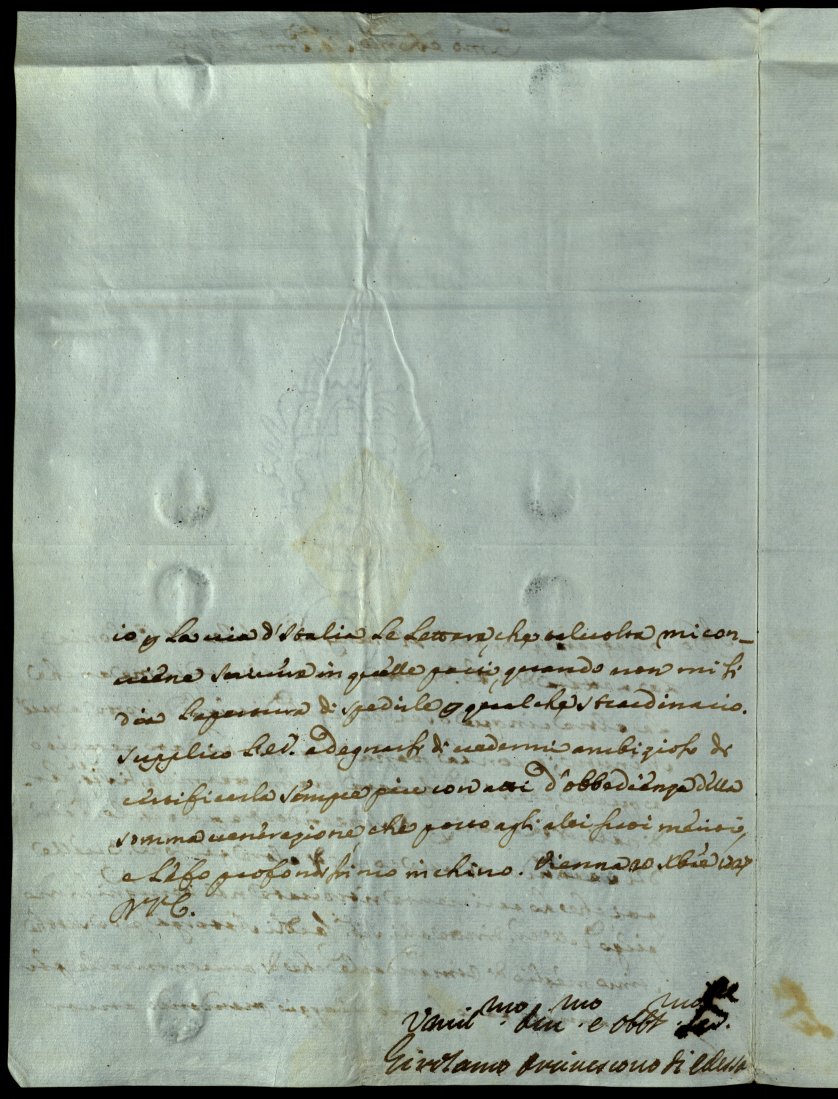 io p la via d'Italia le lettere, che tal volta mi con_
viene scrivere in quelle parti, quando non mi si
dia l'apertura di spedirle p qualche straordinario.
Supplico l'E.V. a degnarsi di credermi ambizioso di
certificarla sempre più con atti d'obbedienza della
somma venerazione che porto agli alti suoi meriti,
e Le fo profondissimo inchino. Vienna 20 Xbre
D.V.E.
Umil.mo Div.mo e Obbl.mo
Girolamo Arcivescovo di Edessa